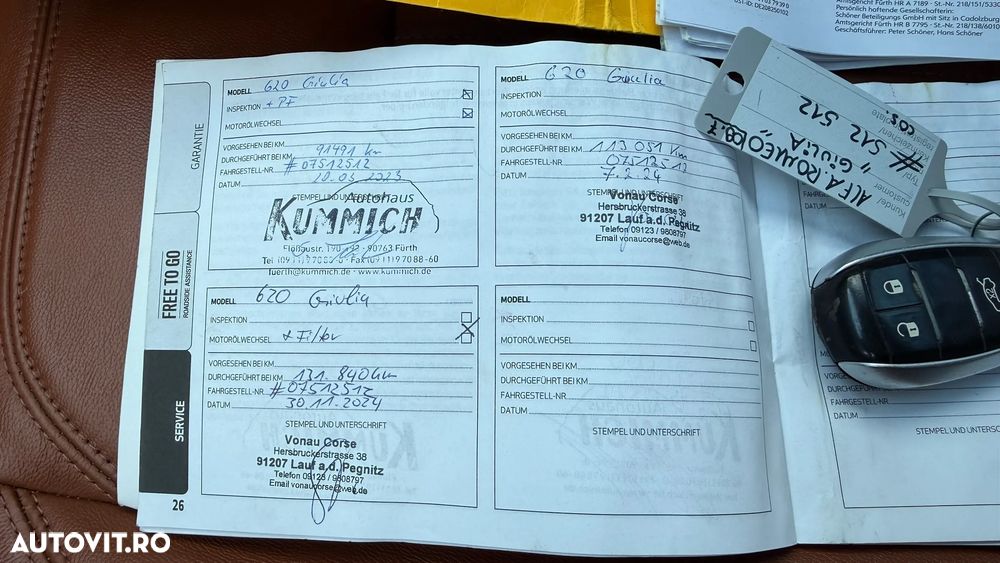 ST-ID: DE208250102
Amtsgericht Fürth HR A 7189 · St.-Nr. 218/151/5330
Persönlich haftende Gesellschafterin:
Schöner Beteiligungs GmbH mit Sitz in Cadolzburg
Amtsgericht Fürth HR B 7795 · St.-Nr. 218/138/6010
Geschäftsführer: Peter Schöner, Hans Schöner
GARANTIE
FREE TO GO
ROADSIDE ASSISTANCE
SERVICE
26
MODELL 620 Giulia
INSPEKTION + PF
MOTORÖLWECHSEL
VORGESEHEN BEI KM
DURCHGEFÜHRT BEI KM 91491 km
FAHRGESTELL-NR #07512512
DATUM 20.03.2023
STEMPEL UND UNTERSCHRIFT
Autohaus
KUMMICH
90763 Fürth
fuerth@kummich.de · www.kummich.de
MODELL 620 Giulia
INSPEKTION
MOTORÖLWECHSEL
VORGESEHEN BEI KM
DURCHGEFÜHRT BEI KM 113 051 km
FAHRGESTELL-NR
DATUM 7.2.24
STEMPEL UND UNTERSCHRIFT
Vonau Corse
Hersbruckerstrasse 38
91207 Lauf a.d. Pegnitz
Telefon 09123 / 9808797
Email vonaucorse@web.de
MODELL 620 Giulia
INSPEKTION
MOTORÖLWECHSEL + Filter
VORGESEHEN BEI KM
DURCHGEFÜHRT BEI KM 131.840 km
FAHRGESTELL-NR #07512512
DATUM 30.11.2024
STEMPEL UND UNTERSCHRIFT
Vonau Corse
Hersbruckerstrasse 38
91207 Lauf a.d. Pegnitz
Telefon 09123 / 9808797
Email vonaucorse@web.de
MODELL
INSPEKTION
MOTORÖLWECHSEL
VORGESEHEN BEI KM
DURCHGEFÜHRT BEI KM
FAHRGESTELL-NR
DATUM
STEMPEL UND UNTERSCHRIFT
Kunde/
customer
ALFA ROMEO
Typ/
"GIULIA"
Kennzeichen/
# 512 512
DURCHGEFÜHRT
FAHRGESTELL-NR
DATUM
STEMPEL UND UNTERSCHRIFT
AUTOVIT.RO